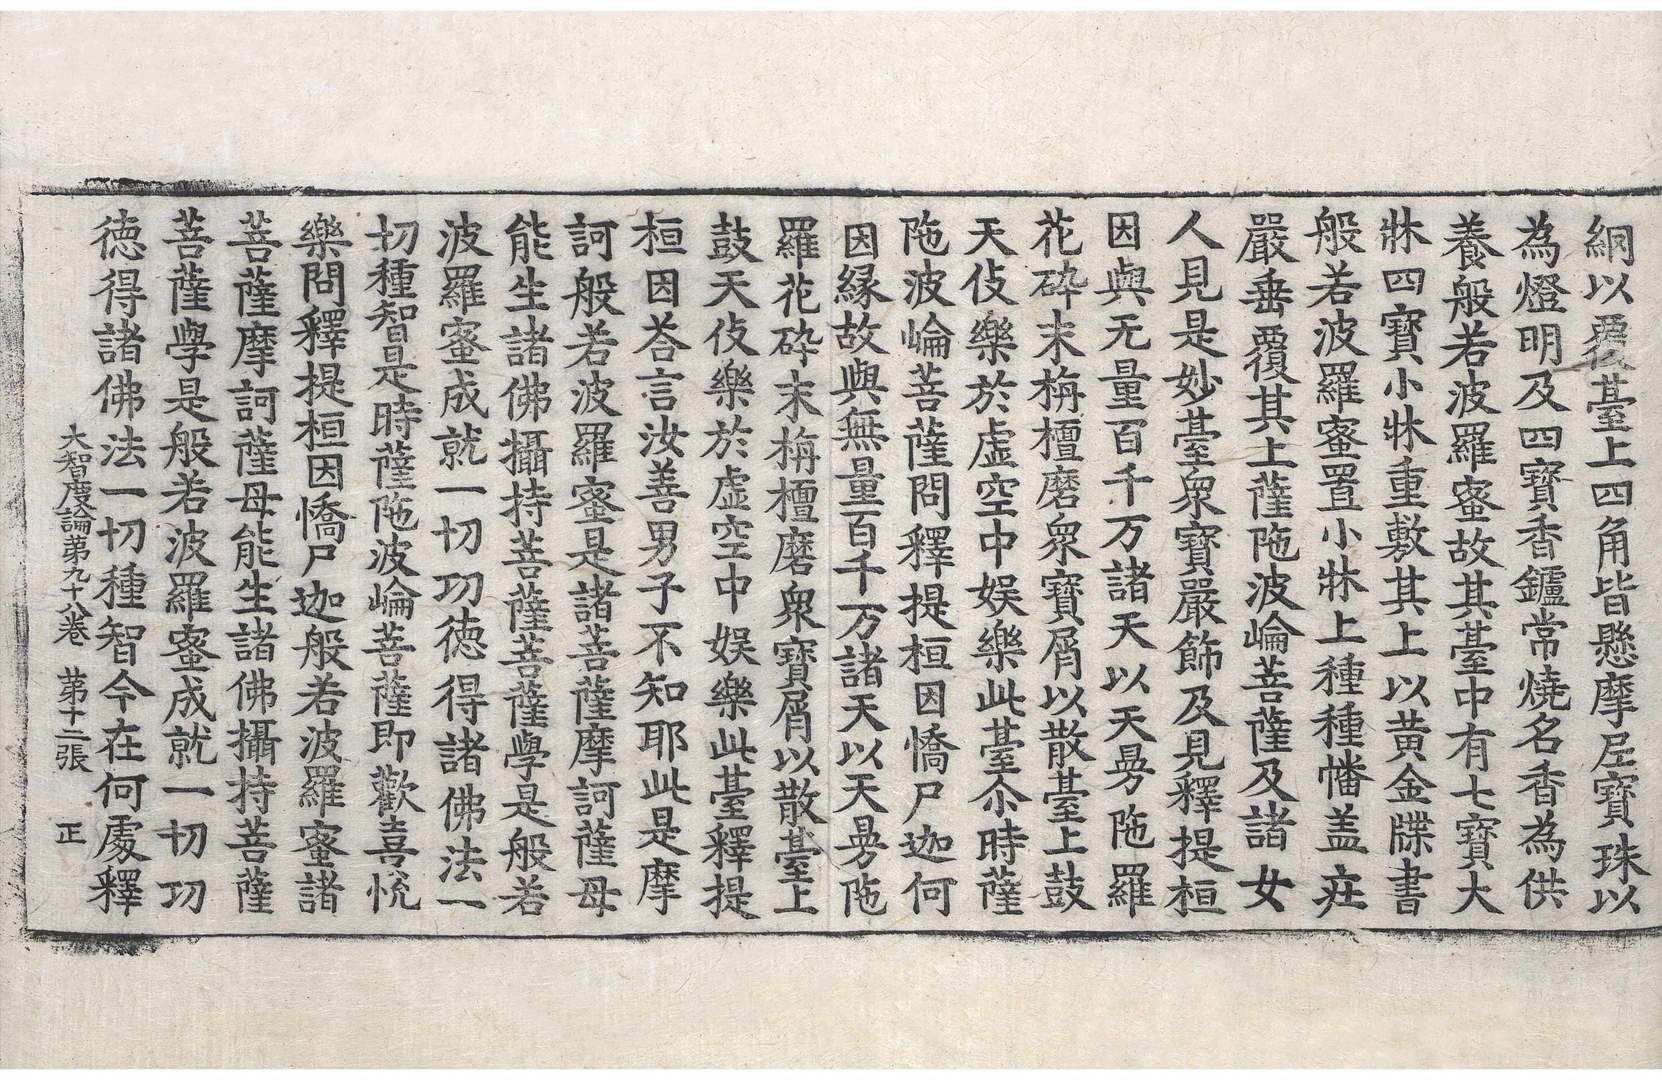 網以覆臺上四角皆懸摩尼寶珠以
為燈明及四寶香鑪常燒名香為供
養般若波羅蜜故其臺中有七寶大
牀四寶小牀重敷其上以黃金牒書
般若波羅蜜置小牀上種種幡盖㽵
嚴垂覆其上薩陁波崘菩薩及諸女
人見是妙臺衆寶嚴飾及見釋提桓
因與无量百千万諸天以天曼陁羅
花碎末栴檀磨衆寶屑以散臺上鼓
天伎樂於虛空中娛樂此臺尒時薩
陁波崘菩薩問釋提桓因憍尸迦何
因緣故與無量百千万諸天以天曼陁
羅花碎末栴檀磨衆寶屑以散臺上
鼓天伎樂於虛空中娛樂此臺釋提
桓因荅言汝善男子不知耶此是摩
訶般若波羅蜜是諸菩薩摩訶薩母
能生諸佛攝持菩薩菩薩學是般若
波羅蜜成就一切功德得諸佛法一
切種智是時薩陁波崘菩薩即歡喜悅
樂問釋提桓因憍尸迦般若波羅蜜諸
菩薩摩訶薩母能生諸佛攝持菩薩
菩薩學是般若波羅蜜成就一切功
德得諸佛法一切種智今在何處釋
大智度論第九十八卷 第十二張 正